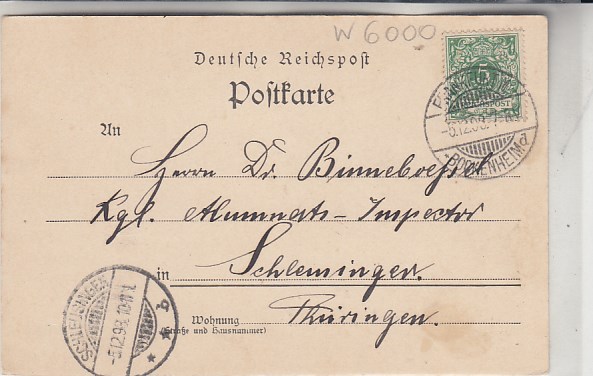 W 6000
Deutsche Reichspost
Postkarte
An
Herrn Dr. Binneboessel
Kgl. Alumnats-Inspector
in Schleusingen.
Wohnung
(Straße und Hausnummer)
Thüringen.
5
-5.12.98.
-BORNHEIM
SCHLEUSINGEN
-5.12.98. 10-11 V.
* * b